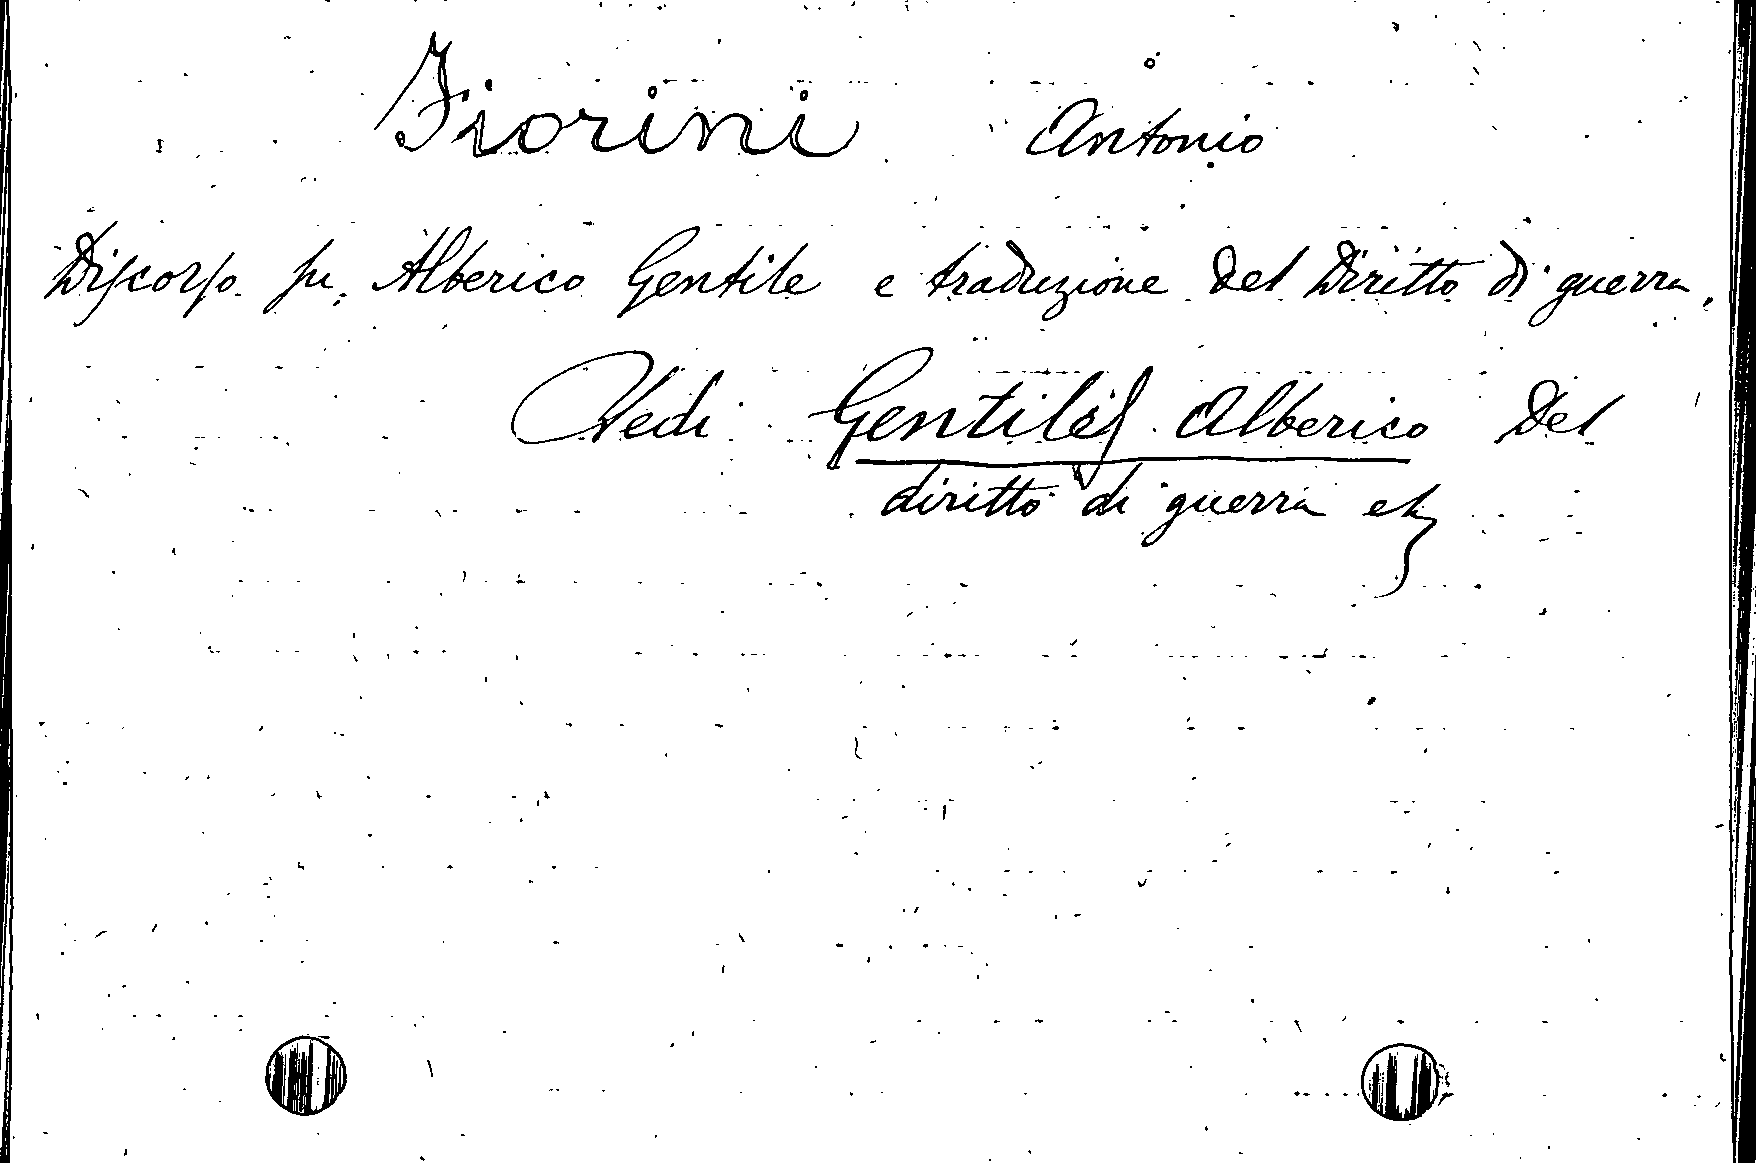 Fiorini Antonio
Discorso su Alberico Gentile e traduzione del Diritto di guerra.
Vedi Gentili Alberico Del
diritto di guerra etc